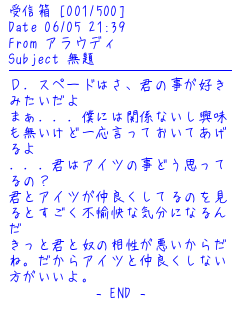 受信箱 [001/500]
Date 06/05 21:39
From アラウディ
Subject 無題
D．スペードはさ、君の事が好き
みたいだよ
まぁ．．．僕には関係ないし興味
も無いけど一応言っておいてあげ
るよ
．．．君はアイツの事どう思って
るの？
君とアイツが仲良くしてるのを見
るとすごく不愉快な気分になるん
だ
きっと君と奴の相性が悪いからだ
ね。だからアイツと仲良くしない
方がいいよ。
- END -